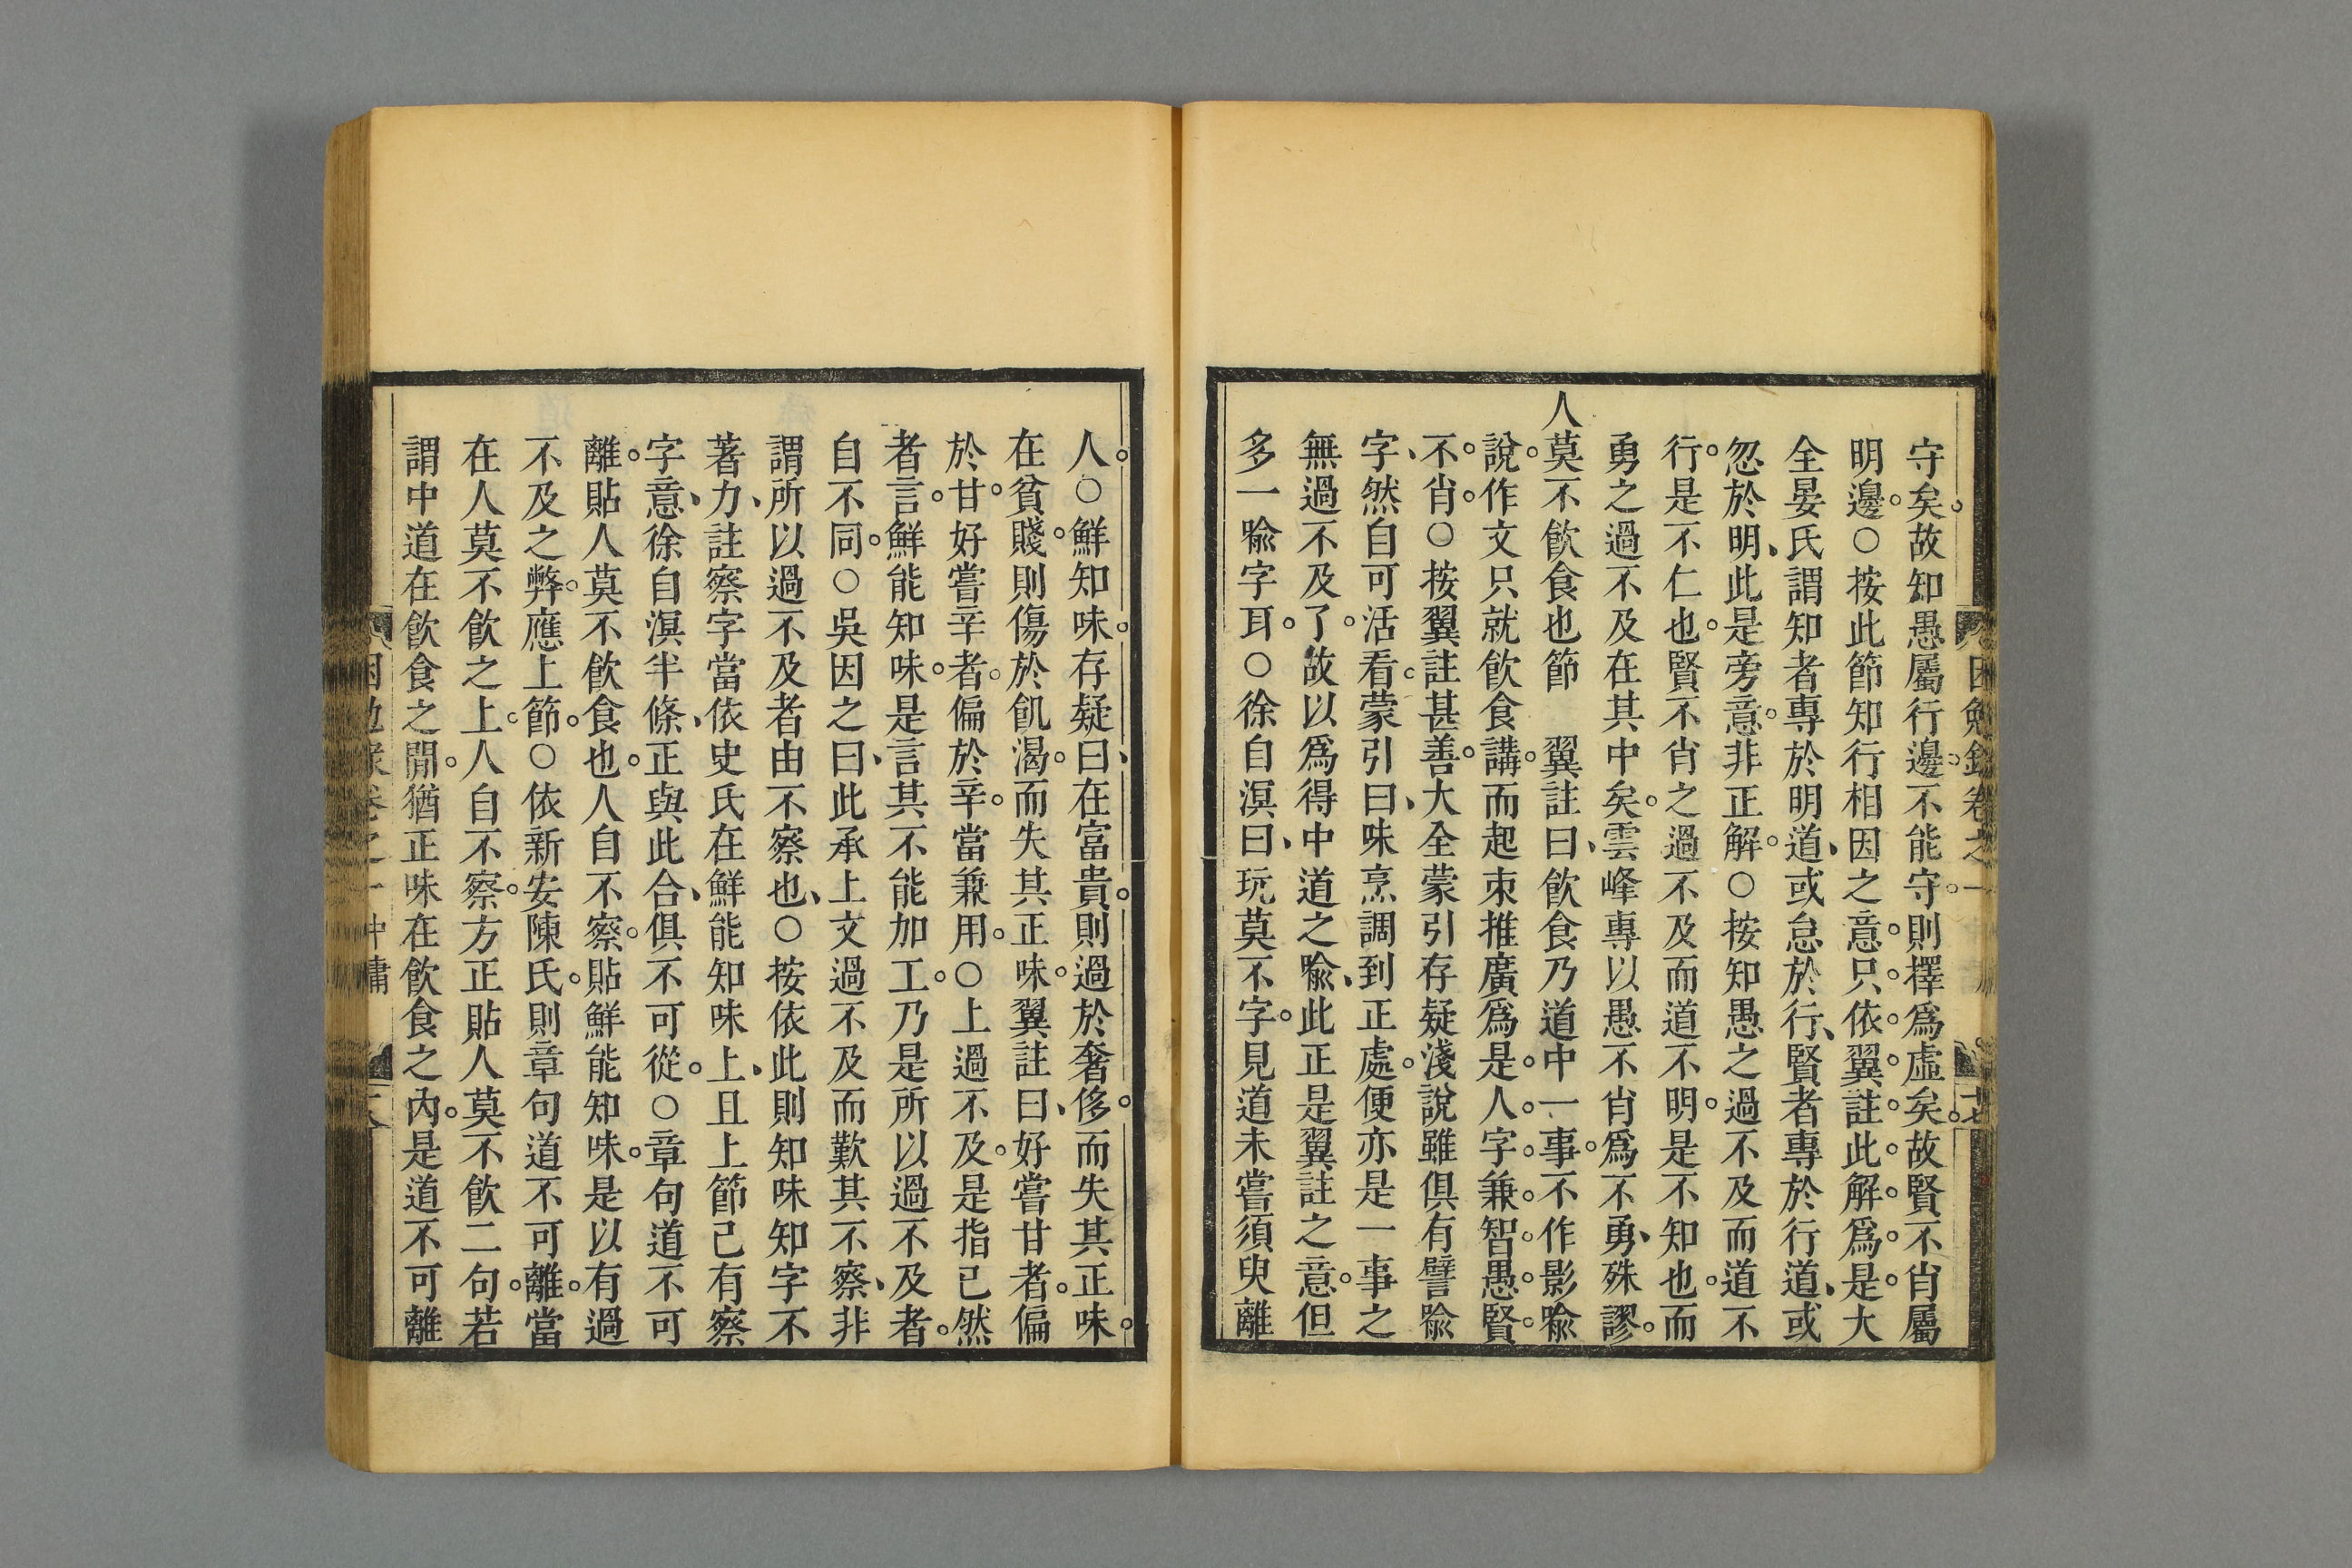 守矣。故知愚屬行邊。不能守。則擇爲虛矣。故賢不肖屬
明邊。○按此節知行相因之意。只依翼註。此解爲是。大
全晏氏謂知者專於明道、或怠於行、賢者專於行道、或
忽於明、此是旁意。非正解。○按知愚之過不及而道不
行。是不仁也。賢不肖之過不及而道不明。是不知也。而
勇之過不及在其中矣。雲峰專以愚不肖爲不勇、殊謬。
人莫不飲食也節　翼註曰、飲食乃道中一事。不作影喻
說。作文只就飲食講。而起束推廣爲是。人字兼智愚。賢。
不。肖。○按翼註甚善。大全蒙引存疑淺說雖俱有譬喻
字、然自可活看。蒙引曰、味烹調到正處。便亦是一事之
無過不及了。故以爲得中道之喻、此正是翼註之意。但
多一喻字耳。○徐自溟曰、玩莫不字。見道未嘗須臾離
人。○鮮知味。存疑曰、在富貴。則過於奢侈。而失其正味。
在貧賤。則傷於飢渴。而失其正味。翼註曰、好嘗甘者。偏
於甘。好嘗辛者。偏於辛。當兼用。○上過不及。是指已然
者言。鮮能知味。是言其不能加工。乃是所以過不及者。
自不同。○吳因之曰、此承上文過不及而歎其不察、非
謂所以過不及者由不察也、○按依此則知味知字不
著力、註察字當依史氏在鮮能知味上、且上節已有察
字意、徐自溟半條、正與此合、俱不可從。○章句道不可
離。貼人莫不飲食也。人自不察。貼鮮能知味。是以有過
不及之弊。應上節。○依新安陳氏。則章句道不可離。當
在人莫不飲之上。人自不察。方正貼人莫不飲二句。若
謂中道在飲食之閒。猶正味在飲食之內。是道不可離